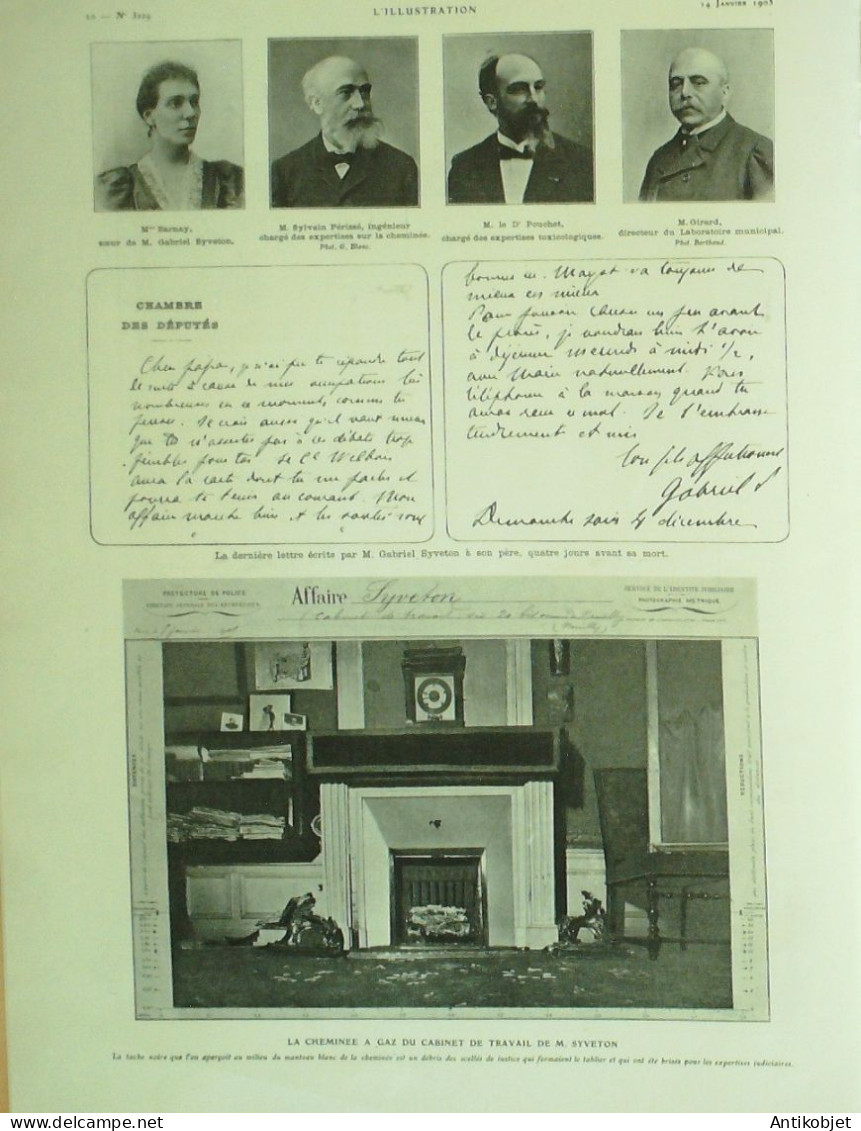 Nº 3229
L'ILLUSTRATION
14 JANVIER 1905
Mme Barnay,
sœur de M. Gabriel Syveton.
M. Sylvain Périssé, ingénieur
chargé des expertises sur la cheminée.
Phot. G. Blanc.
M. le Dr Pouchet,
chargé des expertises toxicologiques.
M. Girard,
directeur du Laboratoire municipal.
Phot. Berthaud.
CHAMBRE
DES DÉPUTÉS
Cher papa, je n'ai pu te répondre tout
de suite à cause de mes occupations très
nombreuses en ce moment, comme tu
penses. Je crois aussi qu'il vaut mieux
que tu n'assistes pas à ces débats trop
pénibles pour toi. Le Cl
aura la carte dont tu me parles et
pourra te tenir au courant. Mon
affaire marche bien et les
bonnes. Magot va toujours de
mieux en mieux
Pour pouvoir causer un peu avant
le procès, je voudrais bien t'avoir
à déjeuner mercredi à midi 1/2,
avec Marie naturellement.
téléphone à la maison quand tu
auras reçu ce mot. Je t'embrasse
tendrement et suis
ton fils affectionné
Gabriel S
Dimanche soir 4 décembre
La dernière lettre écrite par M. Gabriel Syveton à son père, quatre jours avant sa mort.
PRÉFECTURE DE POLICE
Affaire Syveton
SERVICE DE L'IDENTITÉ JUDICIAIRE
PHOTOGRAPHIE MÉTRIQUE
Cabinet de travail
RÉDUCTIONS
LA CHEMINÉE A GAZ DU CABINET DE TRAVAIL DE M. SYVETON
La tache noire que l'on aperçoit au milieu du manteau blanc de la cheminée est un débris des scellés de justice qui fermaient le tablier et qui ont été brisés pour les expertises judiciaires.
Antikobjet